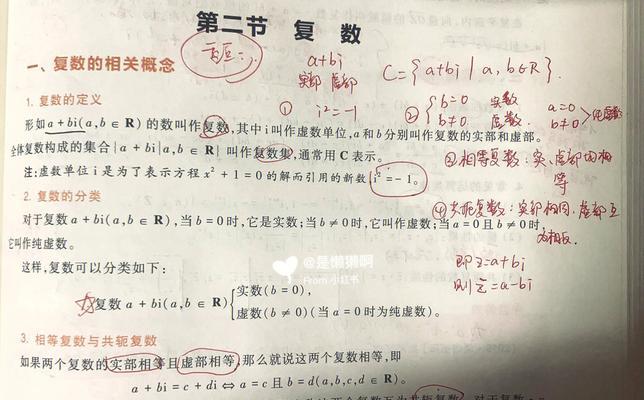 第二节 复数
a+bi
实部 虚部
C={a+bi | a, b∈R}.
一、复数的相关概念
① i²=-1
② { b=0 实数
b≠0 虚数.
a=0
b≠0 } 纯虚数
1. 复数的定义
形如 a + bi(a,b ∈ R) 的数叫作复数,其中 i 叫作虚数单位,a 和 b 分别叫作复数的实部和虚部。
全体复数构成的集合{a + bi|a,b ∈ R} 叫作复数集,通常用 C 表示。
注:虚数单位 i 是为了表示方程 x² + 1 = 0 的解而引用的新数,i² = -1。
③相等复数: 实、虚部均相
等
2. 复数的分类
对于复数 a + bi(a,b ∈ R),当 b = 0 时,它是实数;当 b ≠ 0 时,它叫作虚数;当 a = 0 且 b ≠ 0 时,
它叫作纯虚数。
④共轭复数: 实部相同, 虚部互
为相反.
即 z=a+bi
则 z̄=a-bi
这样,复数可以分类如下:
@是懒懒啊
From 小红书
☆复数 a + bi(a,b ∈ R) { 实数(b = 0),
虚数(b ≠ 0)(当 a = 0 时为纯虚数)。
3. 相等复数与共轭复数
如果两个复数的实部相等且虚部相等,那么就说这两个复数相等,即
a + bi = c + di ⇔ a = c 且 b = d(a,b,c,d ∈ R)。